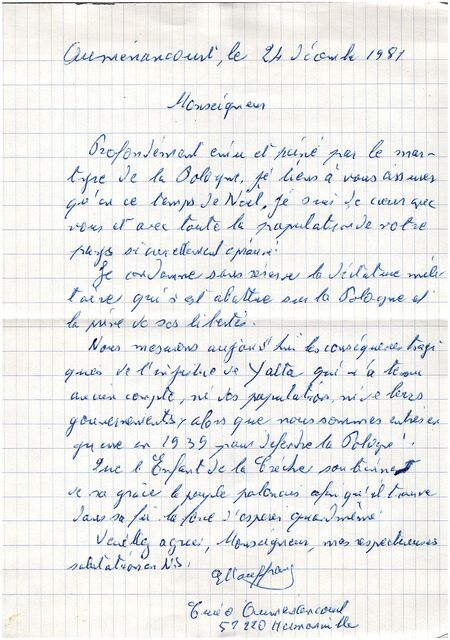 Auménancourt, le 24 décembre 1981
Monseigneur
Profondément ému et peiné par le mar-
tyre de la Pologne, je tiens à vous assurer
qu'en ce temps de Noël, je suis de cœur avec
vous et avec toute la population de votre
pays si cruellement éprouvé.
Je condamne sans réserve la dictature mili-
taire qui s'est abattue sur la Pologne et
la prive de ses libertés.
Nous mesurons aujourd'hui les conséquences tragi-
ques de l'injustice de Yalta qui n'a tenu
aucun compte, ni des populations, ni de leurs
gouvernements, alors que nous sommes entrés en
guerre en 1939 pour défendre la Pologne !
Que l'Enfant de la Crèche soutienne
de sa grâce le peuple polonais afin qu'il trouve
dans sa foi la force d'espérer quand même.
Veuillez agréer, Monseigneur, mes respectueuses
salutations en N.S.
Curé Auménancourt
51220 Hermonville